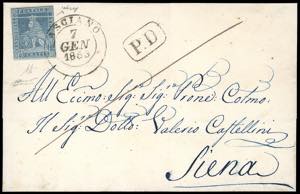 ASCIANO
7
GEN
1853
P.D
All' Eccmo: Sig: Sig: Prone Colmo:
Il Sig: Dotto: Valerio Castellini
Siena